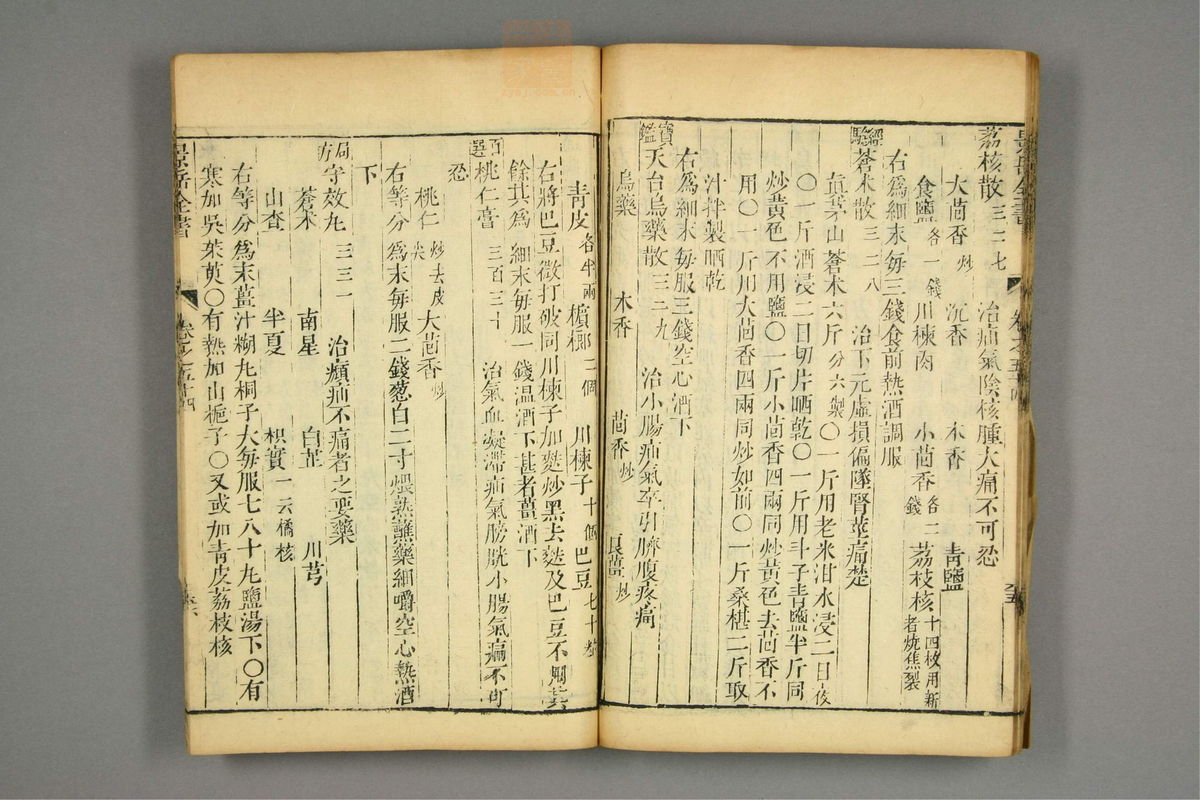 荔核散 三二七 治疝氣陰核腫大痛不可忍
大茴香 炒 沉香 木香 青鹽
食鹽 各一錢 川楝肉 小茴香 各二錢 荔枝核 十四枚用新者燒焦裂
右為細末每三錢食前熱酒調服
經驗 蒼术散 三二八 治下元虛損偏墜腎莖痛楚
真茅山蒼术六斤 分六製 〇一斤用老米泔水浸二日夜
〇一斤酒浸二日切片晒乾〇一斤用斗子青鹽半斤同
炒黃色不用鹽〇一斤小茴香四兩同炒黃色去茴香不
用〇一斤用大茴香四兩同炒如前〇一斤桑椹二斤取
汁拌製晒乾
右為細末每服三錢空心酒下
寶鑑 天台烏藥散 三二九 治小腸疝氣牽引臍腹疼痛
烏藥 木香 茴香 炒 良薑 炒
青皮 各半兩 檳榔 二個 川楝子 十個 巴豆 七十粒
右將巴豆微打破同川楝子加麩炒黑去麩及巴豆不用
餘其為細末每服一錢温酒下甚者薑酒下
百選 桃仁膏 三百三十 治氣血凝滯疝氣膀胱小腸氣痛不可
忍
桃仁 炒去皮尖 大茴香 炒
右等分為末每服二錢葱白二寸煨熟蘸藥細嚼空心熱酒
下
局方 守效丸 三三一 治㿗疝不痛者之要藥
蒼术 南星 白芷 川芎
山查 半夏 枳實 一云橘核
右等分為末薑汁糊丸桐子大每服七八十丸鹽湯下〇有
寒加吳茱萸〇有熱加山梔子〇又或加青皮荔枝核
景岳全書
卷之五十四